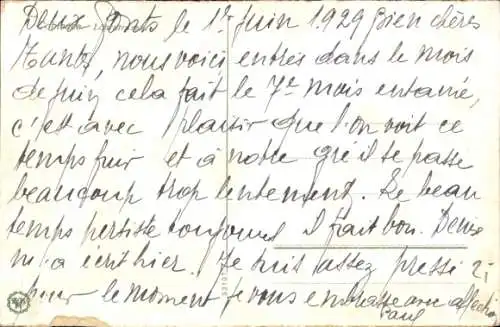 Deux Ponts le 1er Juin 1929 Bien chères
Tantes, nous voici entrés dans le mois
de juin cela fait le 7e mois entamé,
c'est avec plaisir que l'on voit ce
temps fuir et à notre gré il se passe
beaucoup trop lentement. Le beau
temps persiste toujours il fait bon. Denise
m'a écrit hier. Je suis assez pressé
pour le moment je vous embrasse avec affection
Paul